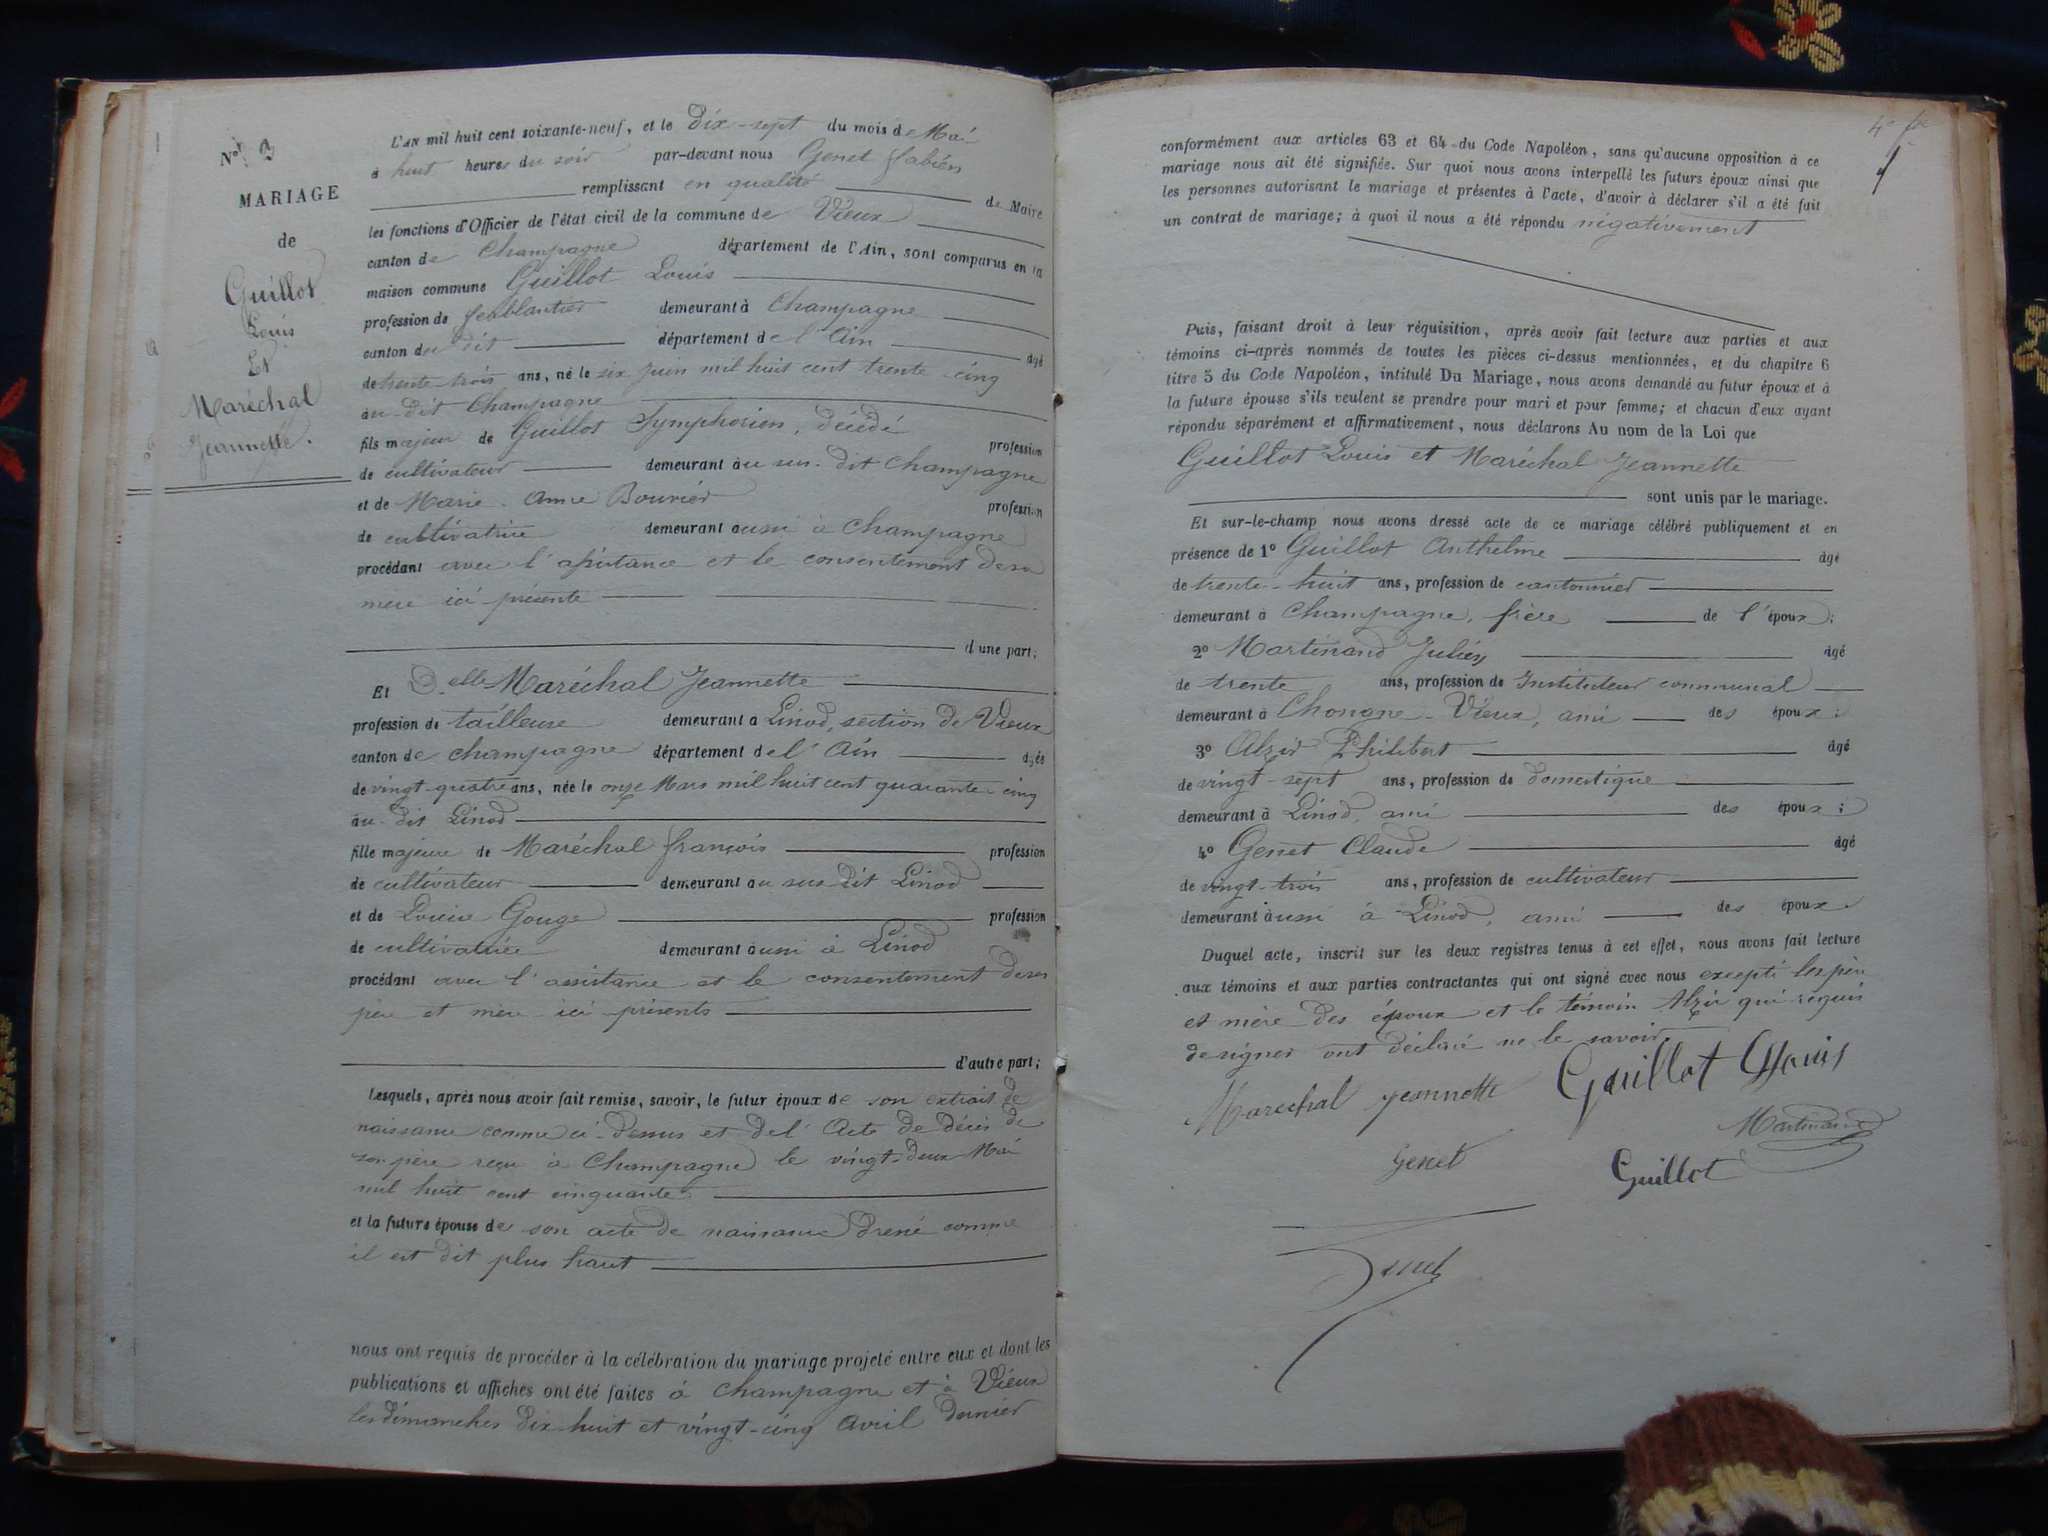 N° 3
MARIAGE
de
Guillot
Louis
Et
Maréchal
Jeannette.
L'AN mil huit cent soixante-neuf, et le dix-sept du mois de Mai
à huit heures du soir par-devant nous Genet fabien
remplissant en qualité de Maire
les fonctions d'Officier de l'état civil de la commune de Vieux
canton de Champagne département de l'Ain, sont comparus en la
maison commune Guillot Louis
profession de ferblantier demeurant à Champagne
canton du dit département de l'Ain âgé
de trente-trois ans, né le six juin mil huit cent trente-cinq
au dit Champagne
fils majeur de Guillot Symphorien, décédé profession
de cultivateur demeurant au sus-dit Champagne
et de Marie-Anne Bouvier profession
de cultivatrice demeurant aussi à Champagne
procédant avec l'assistance et le consentement de sa
mère ici présente
d'une part;
Et D.elle Maréchal Jeannette
profession de tailleuse demeurant à Linod, section de Vieux
canton de Champagne département de l'Ain âgée
de vingt-quatre ans, née le onze Mars mil huit cent quarante-cinq
au dit Linod
fille majeure de Maréchal françois profession
de cultivateur demeurant au sus dit Linod
et de Louise Gouge profession
de cultivatrice demeurant aussi à Linod
procédant avec l'assistance et le consentement de ses
père et mère ici présents
d'autre part;
Lesquels, après nous avoir fait remise, savoir, le futur époux de son extrait de
naissance comme ci-dessus et de l'Acte de décès de
son père reçu à Champagne le vingt-deux Mai
mil huit cent cinquante
et la future épouse de son acte de naissance dressé comme
il est dit plus haut
nous ont requis de procéder à la célébration du mariage projeté entre eux et dont les
publications et affiches ont été faites à Champagne et à Vieux
les dimanches dix-huit et vingt-cinq avril dernier
conformément aux articles 63 et 64 du Code Napoléon, sans qu'aucune opposition à ce
mariage nous ait été signifiée. Sur quoi nous avons interpellé les futurs époux ainsi que
les personnes autorisant le mariage et présentes à l'acte, d'avoir à déclarer s'il a été fait
un contrat de mariage; à quoi il nous a été répondu négativement
Puis, faisant droit à leur réquisition, après avoir fait lecture aux parties et aux
témoins ci-après nommés de toutes les pièces ci-dessus mentionnées, et du chapitre 6
titre 5 du Code Napoléon, intitulé Du Mariage, nous avons demandé au futur époux et à
la future épouse s'ils veulent se prendre pour mari et pour femme; et chacun d'eux ayant
répondu séparément et affirmativement, nous déclarons Au nom de la Loi que
Guillot Louis et Maréchal Jeannette
sont unis par le mariage.
Et sur-le-champ nous avons dressé acte de ce mariage célébré publiquement et en
présence de 1° Guillot Anthelme âgé
de trente-huit ans, profession de cantonnier
demeurant à Champagne, frère de l'époux;
2° Martinand Julien âgé
de trente ans, profession de Instituteur communal
demeurant à Chongne-Vieux, ami des époux;
3° Alzir Philibert âgé
de vingt-sept ans, profession de domestique
demeurant à Linod, ami des époux;
4° Genet Claude âgé
de vingt-trois ans, profession de cultivateur
demeurant aussi à Linod, ami des époux
Duquel acte, inscrit sur les deux registres tenus à cet effet, nous avons fait lecture
aux témoins et aux parties contractantes qui ont signé avec nous excepté les père
et mère des époux et le témoin Alzir qui requis
de signer ont déclaré ne le savoir
Marechal jeannette Guillot Louis
Martinand
Genet Guillot
Genet